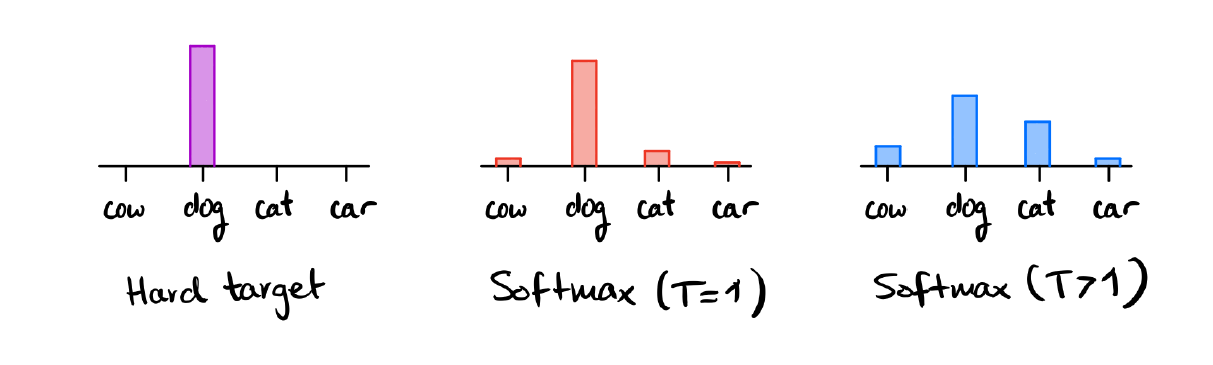 cow dog cat car
Hard target
cow dog cat car
Softmax (T=1)
cow dog cat car
Softmax (T>1)